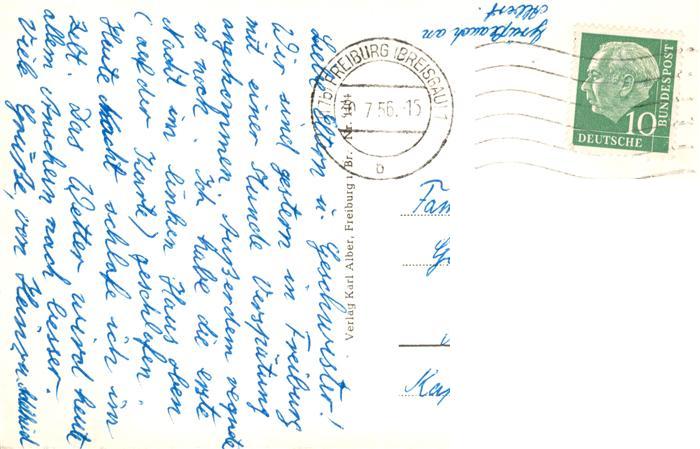 Liebe Eltern u. Geschwister!
Wir sind gestern in Freiburg
mit einer Stunde Verspätung
angekommen. Außerdem regnete
es noch. Ich habe die erste
Nacht im linken Haus oben
(auf der Karte) geschlafen.
Heute Nacht schlafe ich im
Zelt. Das Wetter wird heute
allem Anschein nach besser.
Viele Grüße, von Heinz
Grüße auch an
Albert.
(17b) FREIBURG (BREISGAU) 1
7.56.-15
b
10
DEUTSCHE
BUNDESPOST
Verlag Karl Alber, Freiburg i. Br.
Fam